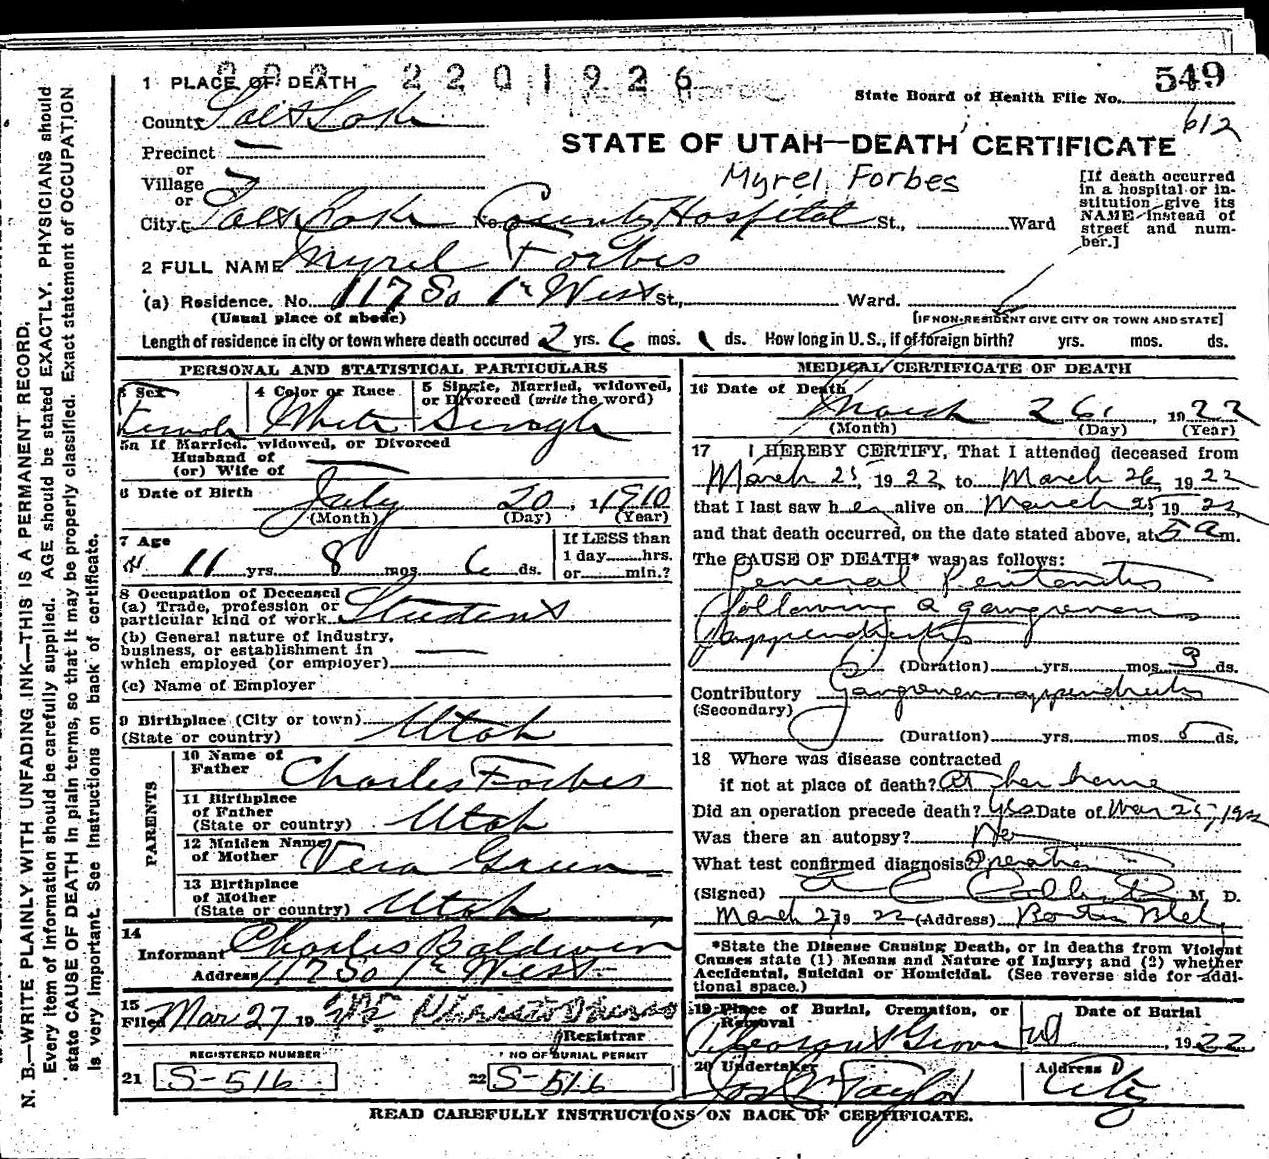 549
State Board of Health File No.
612
1 PLACE OF DEATH
County Salt Lake
STATE OF UTAH—DEATH CERTIFICATE
Precinct —
or
Village
or
Myrel Forbes
[If death occurred in a hospital or institution give its NAME instead of street and number.]
City Salt Lake No. County Hospital St., Ward
2 FULL NAME Myrel Forbes
(a) Residence. No. 117 So 1st West St., Ward.
(Usual place of abode)
[IF NON-RESIDENT GIVE CITY OR TOWN AND STATE]
Length of residence in city or town where death occured 2 yrs. 6 mos. 1 ds. How long in U. S., if of foreign birth? yrs. mos. ds.
PERSONAL AND STATISTICAL PARTICULARS
3 Sex
4 Color or Race
5 Single, Married, widowed, or Divorced (write the word)
Female White Single
5a If Married, widowed, or Divorced
Husband of
(or) Wife of —
6 Date of Birth July 20, 1910
(Month) (Day) (Year)
7 Age
11 yrs. 8 mos 6 ds.
If LESS than
1 day hrs.
or min.?
8 Occupation of Deceased
(a) Trade, profession or
particular kind of work Student
(b) General nature of industry,
business, or establishment in
which employed (or employer)
(c) Name of Employer
9 Birthplace (City or town)
(State or country) Utah
PARENTS
10 Name of
Father Charles Forbes
11 Birthplace
of Father
(State or country) Utah
12 Maiden Name
of Mother Vera Green
13 Birthplace
of Mother
(State or country) Utah
14
Informant Charles Baldwin
Address 117 So 1st West
15
Filed Mar 27 19
Registrar
REGISTERED NUMBER
21 S-516
NO OF BURIAL PERMIT
22 S-516
MEDICAL CERTIFICATE OF DEATH
16 Date of Death
March 26, 1922
(Month) (Day) (Year)
17 I HEREBY CERTIFY, That I attended deceased from
March 25, 1922, to March 26, 1922
that I last saw her alive on March 25 1922,
and that death occurred, on the date stated above, at 5 a m.
The CAUSE OF DEATH* was as follows:
General Peritonitis
following a gangrenous
appendicitis
(Duration) yrs. mos 3 ds.
Contributory Gangrenous appendicitis
(Secondary)
(Duration) yrs. mos 5 ds.
18 Where was disease contracted
if not at place of death? At her home
Did an operation precede death? Yes Date of Mar 25, 1922
Was there an autopsy? No
What test confirmed diagnosis? Operation
(Signed) M. D.
March 27 1922 (Address)
*State the Disease Causing Death, or in deaths from Violent
Causes state (1) Means and Nature of Injury; and (2) whether
Accidental, Suicidal or Homicidal. (See reverse side for additional space.)
19 Place of Burial, Cremation, or
Removal
Pleasant Grove Ut
Date of Burial
, 1922
20 Undertaker
Jos Wm Taylor
Address
City
READ CAREFULLY INSTRUCTIONS ON BACK OF CERTIFICATE.
N. B.—WRITE PLAINLY WITH UNFADING INK—THIS IS A PERMANENT RECORD.
Every item of information should be carefully supplied. AGE should be stated EXACTLY. PHYSICIANS should
state CAUSE OF DEATH in plain terms, so that it may be properly classified. Exact statement of OCCUPATION
is very important. See instructions on back of certificate.